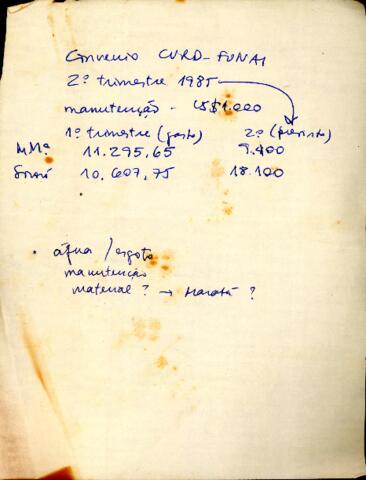 Convenio CVRD-FUNAI
2º trimestre 1985
manutenção - US$1.000
1º trimestre (gasto) 2º (previsto)
MMª 11.295,65 9.400
Sororó 10.607,75 18.100
• água / esgoto
manutenção
material? →